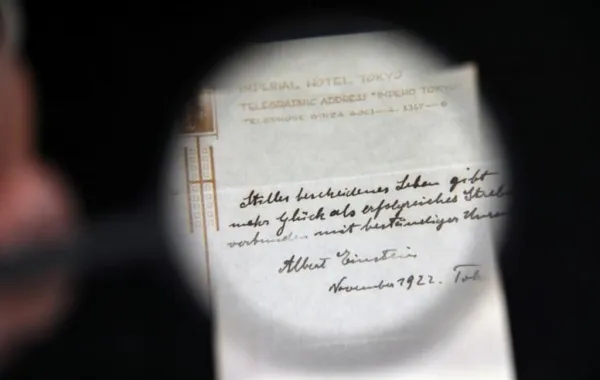 IMPERIAL HOTEL TOKYO
TELEGRAPHIC ADDRESS "IMPEHO TOKYO
TELEPHONE GINZA
Stilles bescheidenes Leben gibt
mehr Glück als erfolgreiches Streb
verbunden mit beständiger
Albert Einstein
November 1922.